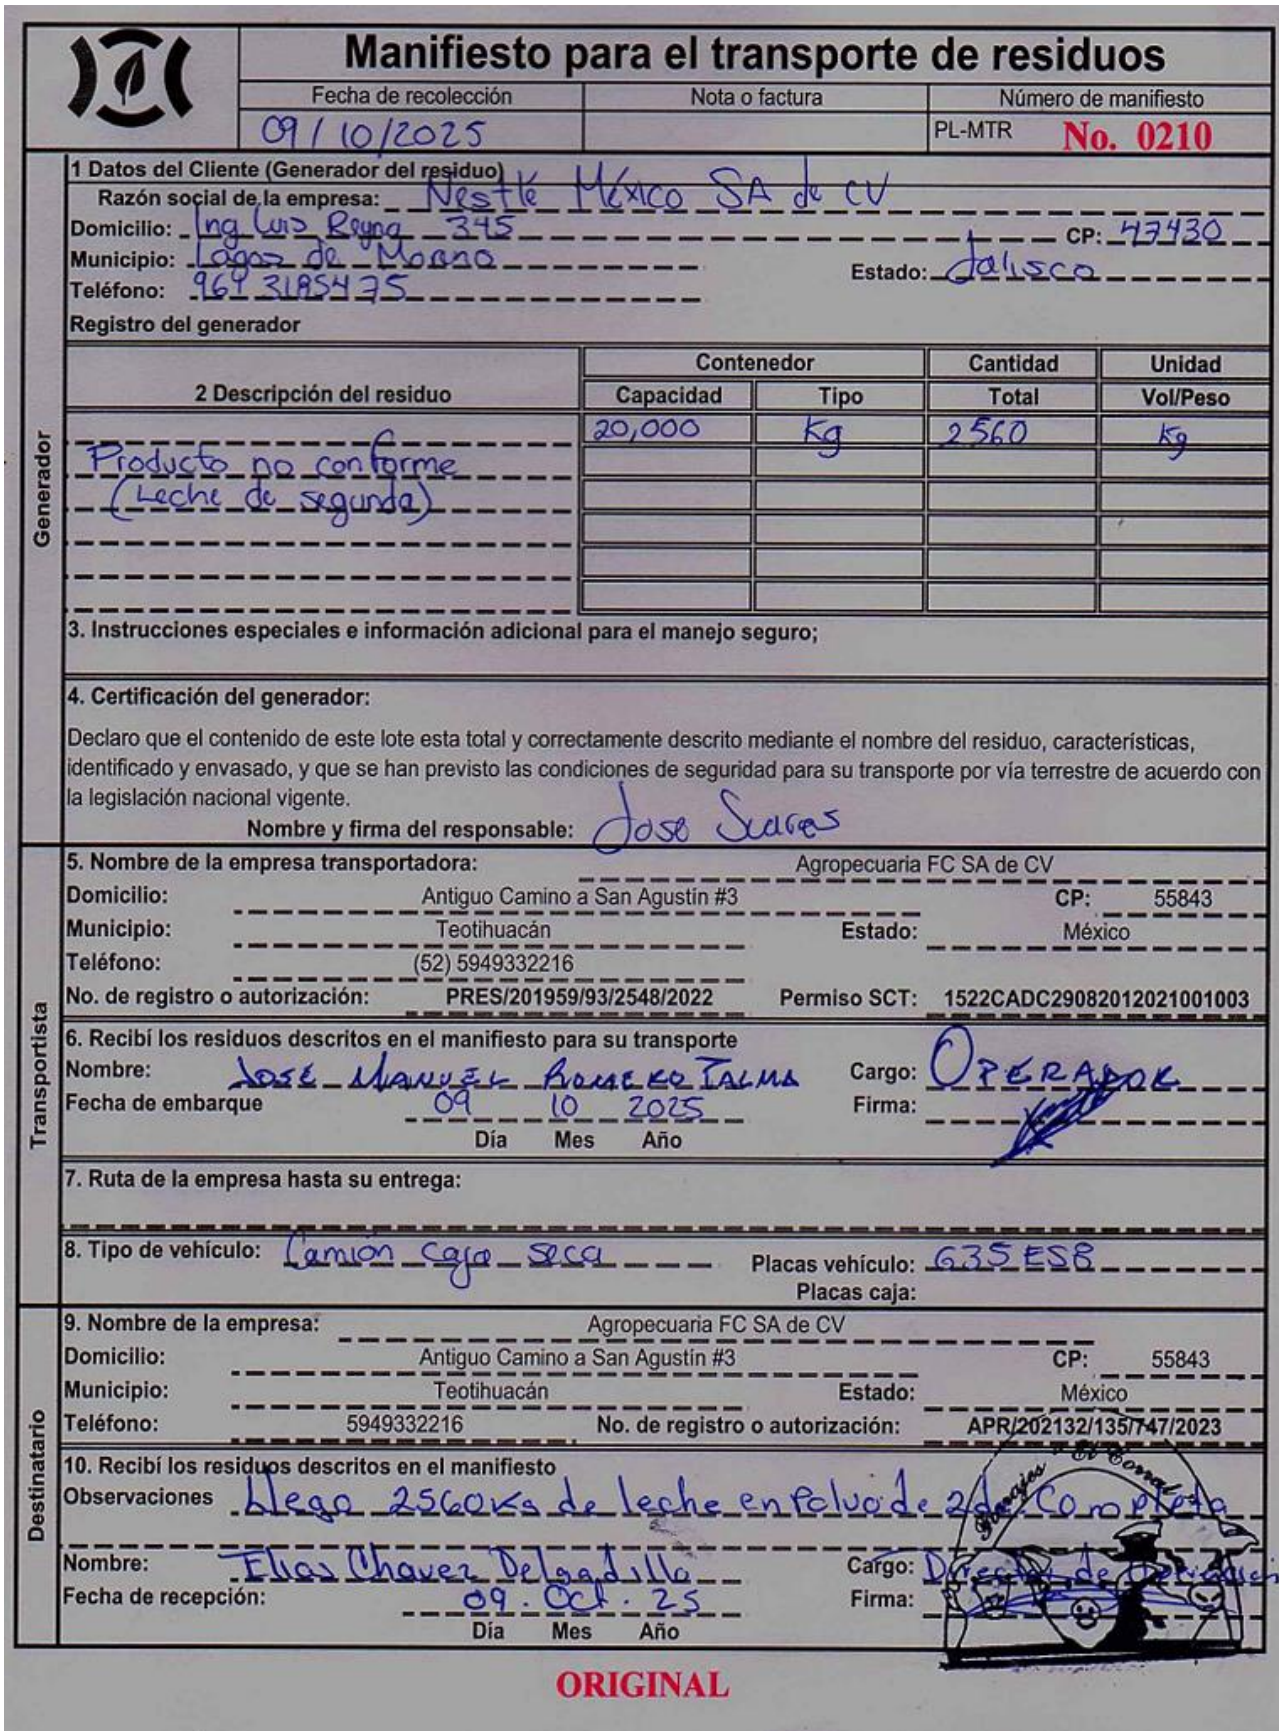 Manifiesto para el transporte de residuos
Fecha de recolección Nota o factura Número de manifiesto
09/10/2025 PL-MTR No. 0210
1 Datos del Cliente (Generador del residuo)
Razón social de la empresa: Nestlé México SA de CV
Domicilio: Ing Luis Reyna 345 CP: 47430
Municipio: Lagos de Moreno Estado: Jalisco
Teléfono:
Registro del generador
Contenedor Cantidad Unidad
2 Descripción del residuo Capacidad Tipo Total Vol/Peso
20,000 Kg 2560 Kg
Producto no conforme
(Leche de segunda)
Generador
3. Instrucciones especiales e información adicional para el manejo seguro;
4. Certificación del generador:
Declaro que el contenido de este lote esta total y correctamente descrito mediante el nombre del residuo, características,
identificado y envasado, y que se han previsto las condiciones de seguridad para su transporte por vía terrestre de acuerdo con
la legislación nacional vigente.
Nombre y firma del responsable: Jose Suares
5. Nombre de la empresa transportadora: Agropecuaria FC SA de CV
Domicilio: Antiguo Camino a San Agustín #3 CP: 55843
Municipio: Teotihuacán Estado: México
Teléfono: (52) 5949332216
No. de registro o autorización: PRES/201959/93/2548/2022 Permiso SCT: 1522CADC29082012021001003
Transportista
6. Recibí los residuos descritos en el manifiesto para su transporte
Nombre: JOSÉ MANUEL ROMERO PALMA Cargo: OPERADOR
Fecha de embarque 09 10 2025 Firma:
Día Mes Año
7. Ruta de la empresa hasta su entrega:
8. Tipo de vehículo: Camión caja seca Placas vehículo: 635ES8
Placas caja:
9. Nombre de la empresa: Agropecuaria FC SA de CV
Domicilio: Antiguo Camino a San Agustín #3 CP: 55843
Municipio: Teotihuacán Estado: México
Teléfono: 5949332216 No. de registro o autorización: APR/202132/135/747/2023
Destinatario
10. Recibí los residuos descritos en el manifiesto
Forrajes "El Corral"
Observaciones Llego 2560Kg de leche en Polvo de 2da. Completa
Nombre: Elias Chavez Delgadillo Cargo: Director de
Fecha de recepción: 09. Oct. 25 Firma:
Día Mes Año
ORIGINAL